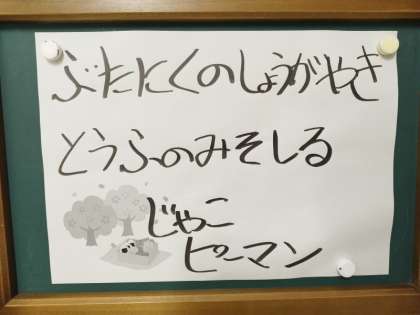 ぶたにくのしょうがやき
とうふのみそしる
じゃこ
ピーマン